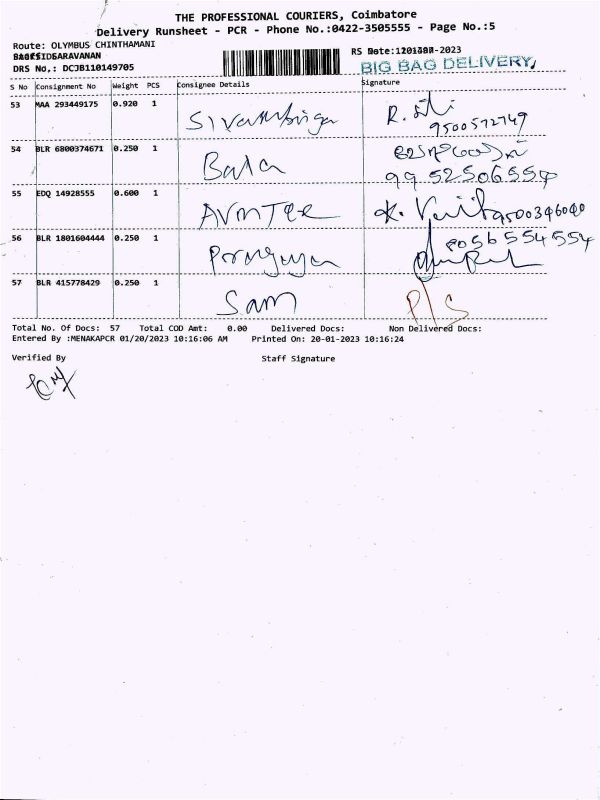 THE PROFESSIONAL COURIERS, Coimbatore
Delivery Runsheet - PCR - Phone No.:0422-3505555 - Page No.:5
Route: OLYMBUS CHINTHAMANI
SARAVANAN
RS Date: -2023
DRS No.: DCJB110149705
BIG BAG DELIVERY,
S No Consignment No Weight PCS Consignee Details Signature
53 MAA 293449175 0.920 1
9500572749
54 BLR 6800374671 0.250 1 Bala
55 EDQ 14928555 0.600 1
56 BLR 1801604444 0.250 1
8056554554
57 BLR 415778429 0.250 1 Sam P/S
Total No. Of Docs: 57 Total COD Amt: 0.00 Delivered Docs: Non Delivered Docs:
Entered By :MENAKAPCR 01/20/2023 10:16:06 AM Printed On: 20-01-2023 10:16:24
Verified By Staff Signature